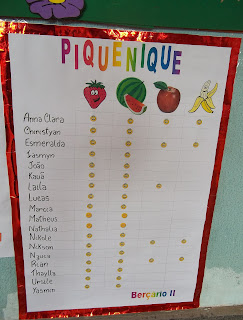 PIQUENIQUE
Anna Clara
Christyan
Esmeralda
Iasmyn
João
Kauã
Laíla
Lucas
Marcia
Matheus
Nathalia
Nikole
Nikson
Rian
Thaylla
Yasmin
Berçário II